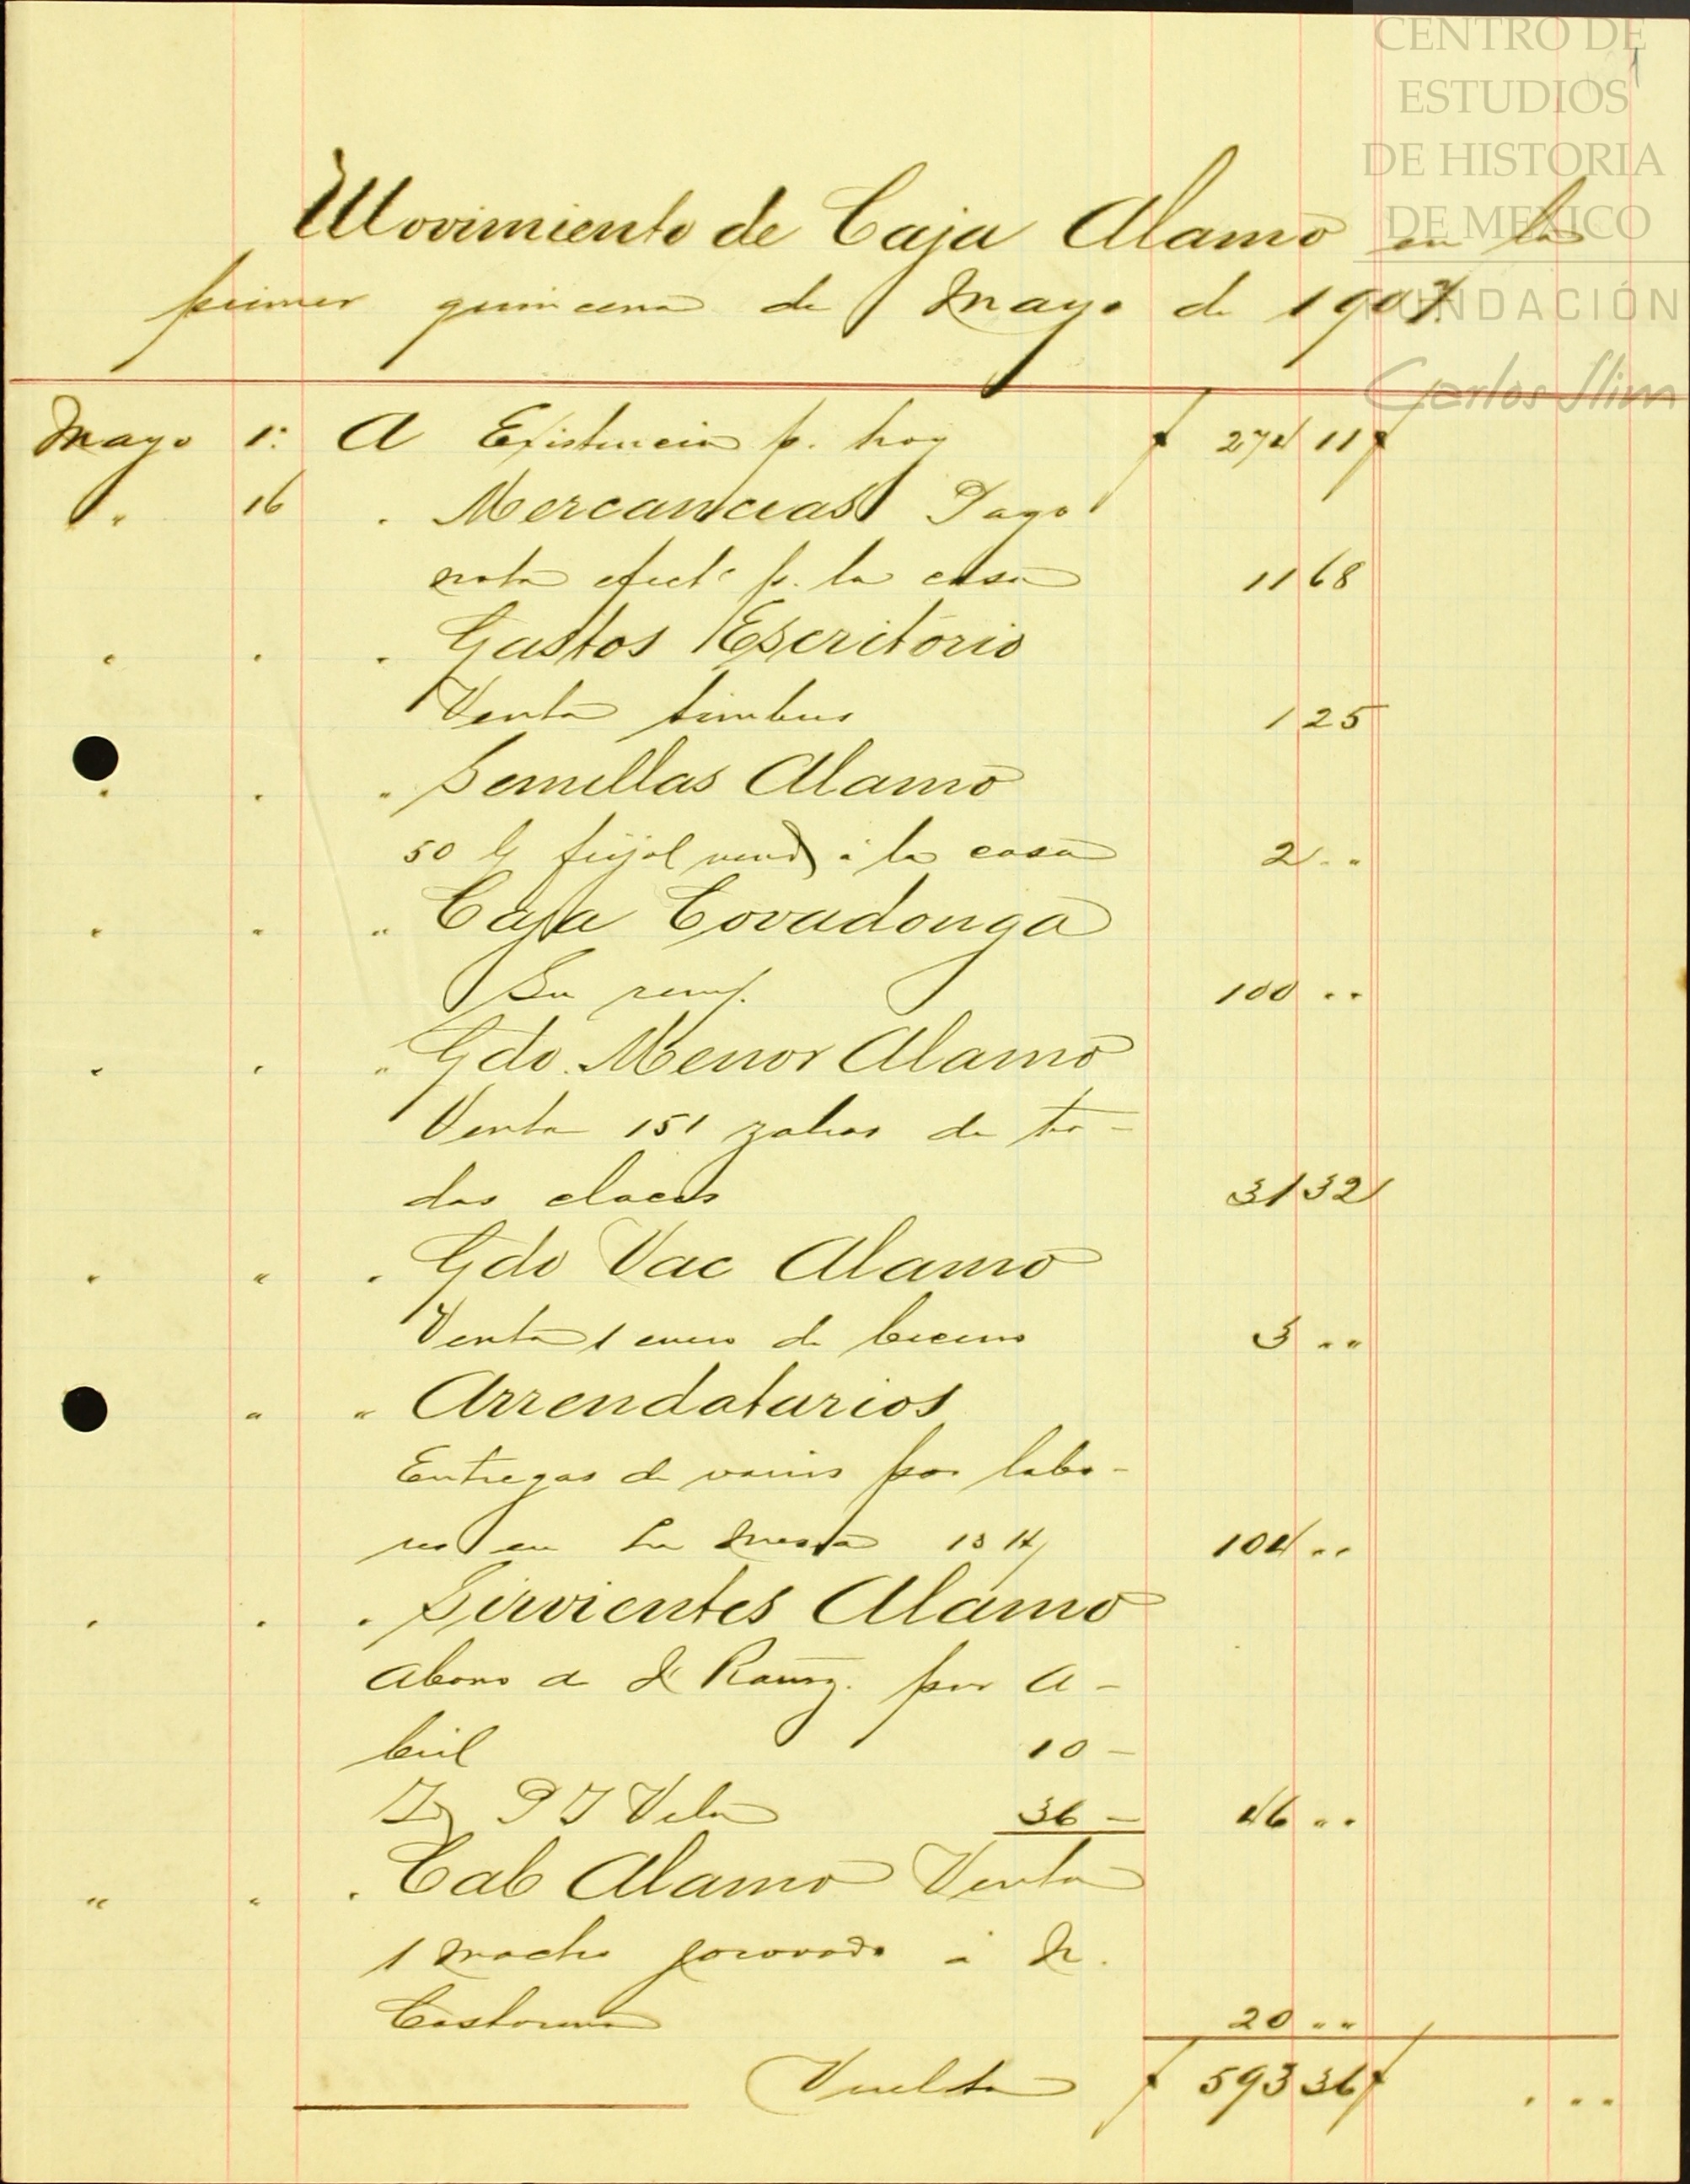 CENTRO DE
ESTUDIOS
DE HISTORIA
DE MEXICO
FUNDACIÓN
Carlos Slim
1
Movimiento de Caja Alamo en la
primer quincena de Mayo de 1907.
Mayo 1º. A Existencia p. hoy $ 274 11 $
" " 16 . Mercancias Pago
nota efect. p. la casa 11 68
" . . Gastos Escritorio
Venta timbres 1 25
" . " Semillas Alamo
50 frijol vend á la casa 2 " "
" " " Caja Covadonga
Su rem/. 100 " "
" . " Gdo. Menor Alamo
Venta 151 zaleas de to-
das clases 31 32
" " . Gdo Vac Alamo
Venta 1 cuero de becerro 3 " "
" " Arrendatarios
Entregas de varios por labo-
res en La Mesa 13 104 " "
. . . Sirvientes Alamo
Abono de Ramz. por A-
bril 10 -
Id P J Vela 36 - 46 " "
" " . Cab Alamo Venta
1 macho á
20 " "
Vuelta $ 593 36 $ . " "